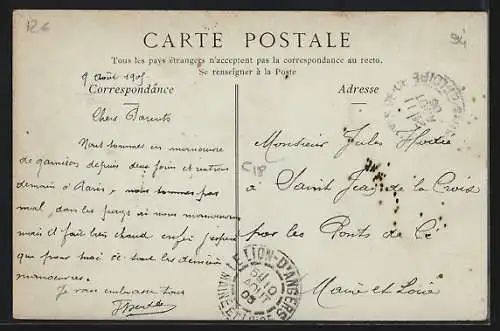 CARTE POSTALE
Tous les pays étrangers n'acceptent pas la correspondance au recto.
Se renseigner à la Poste
9 Août 1905
Correspondance
Adresse
Chers Parents
Nous sommes en manoeuvre
de garnison depuis deux jours et rentrons
demain à Paris, nous sommes pas
mal, dans les pays où nous manoeuvrons
mais il fait bien chaud enfin j'espère
que pour moi ce sont les dernières
manoeuvres.
Je vous embrasse tous
Monsieur Jules
à Saint Jean de la Croix
par les Ponts de Cé
Maine et Loire
C18
LE LION-D'ANGERS
10
AOUT
05
MAINE-ET-LOIRE